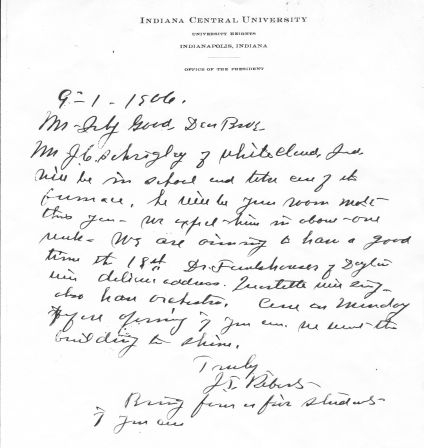 INDIANA CENTRAL UNIVERSITY
UNIVERSITY HEIGHTS
INDIANAPOLIS, INDIANA
OFFICE OF THE PRESIDENT
9-1-1906.
Mr Good, Dear Bro:
Mr J.C. of White Cloud, Ind
will be in school and take care of the
furnace, he will be your room mate
this year - we expect him in about one
week - We are aiming to have a good
time the 18th Dr. Funkhouser of Dayton
will deliver address. Quartette will sing -
also have orchestra. Come on Monday
before opening if you can. We want the
building to shine.
Truly
J.T. Roberts
Bring four or five students
if you can